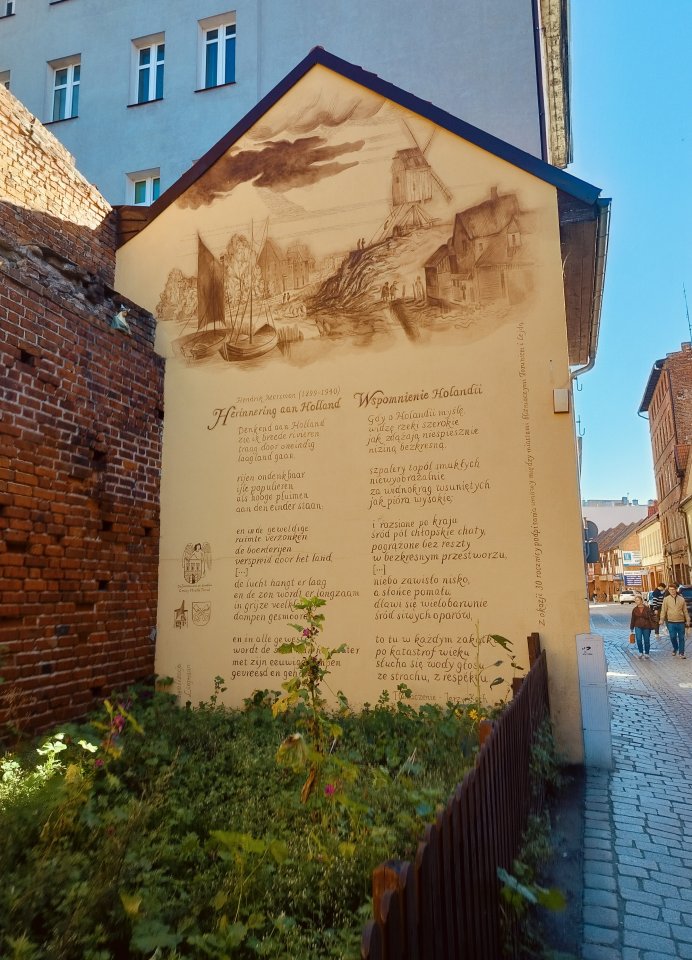 Hendrik Marsman (1899-1940)
Herinnering aan Holland
Denkend aan Holland
zie ik breede rivieren
traag door oneindig
laagland gaan,
rijen ondenkbaar
ijle populieren
als hooge pluimen
aan den einder staan;
en in de geweldige
ruimte verzonken
de boerderijen
verspreid door het land,
[...]
de lucht hangt er laag
en de zon wordt er langzaam
in grijze
dampen gesmoord,
en in alle
wordt de
met zijn eeuwige
gevreesd en
Wspomnienie Holandii
Gdy o Holandii myślę,
widzę rzeki szerokie
jak zdążają niespiesznie
niziną bezkresną,
szpalery topól smukłych
niewyobrażalnie
za widnokrąg wsuniętych
jak pióra wysokie;
i rozsiane po kraju
śród pól chłopskie chaty,
pogrążone bez reszty
w bezkresnym przestworzu,
[...]
niebo zawisło nisko,
a słońce pomału
dławi się wielobarwnie
śród siwych oparów,
to tu w każdym zakątku
po katastrof wieku
słucha się wody głosu
ze strachu, z respektu.
Z okazji 30 rocznicy podpisania umowy między miastami bliźniaczymi Toruniem i Lejdą